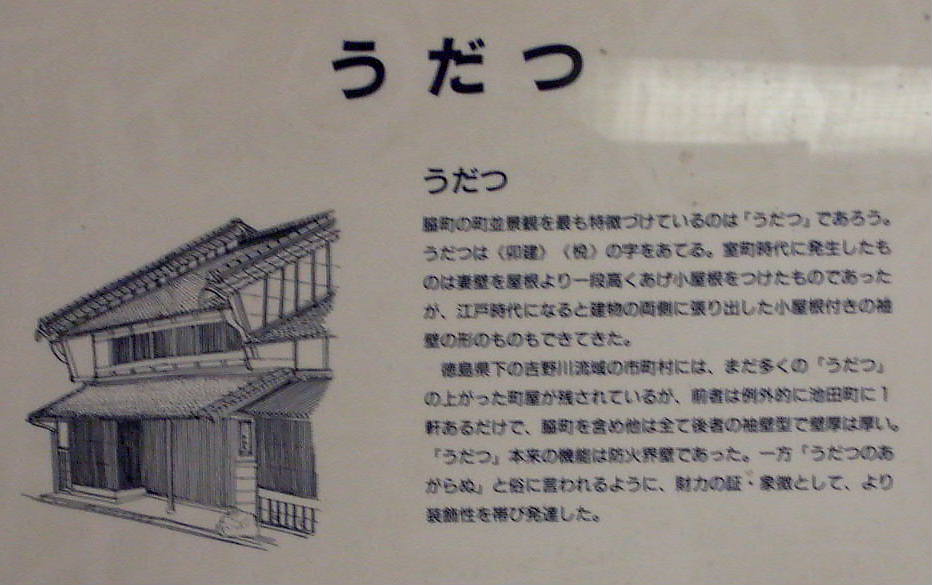 うだつ
うだつ
脇町の町並景観を最も特徴づけているのは「うだつ」であろう。
うだつは〈卯建〉〈梲〉の字をあてる。室町時代に発生したも
のは妻壁を屋根より一段高くあげ小屋根をつけたものであった
が、江戸時代になると建物の両側に張り出した小屋根付きの袖
壁の形のものもできてきた。
徳島県下の吉野川流域の市町村には、まだ多くの「うだつ」
の上がった町屋が残されているが、前者は例外的に池田町に1
軒あるだけで、脇町を含め他は全て後者の袖壁型で壁厚は厚い。
「うだつ」本来の機能は防火界壁であった。一方「うだつのあ
がらぬ」と俗に言われるように、財力の証・象徴として、より
装飾性を帯び発達した。